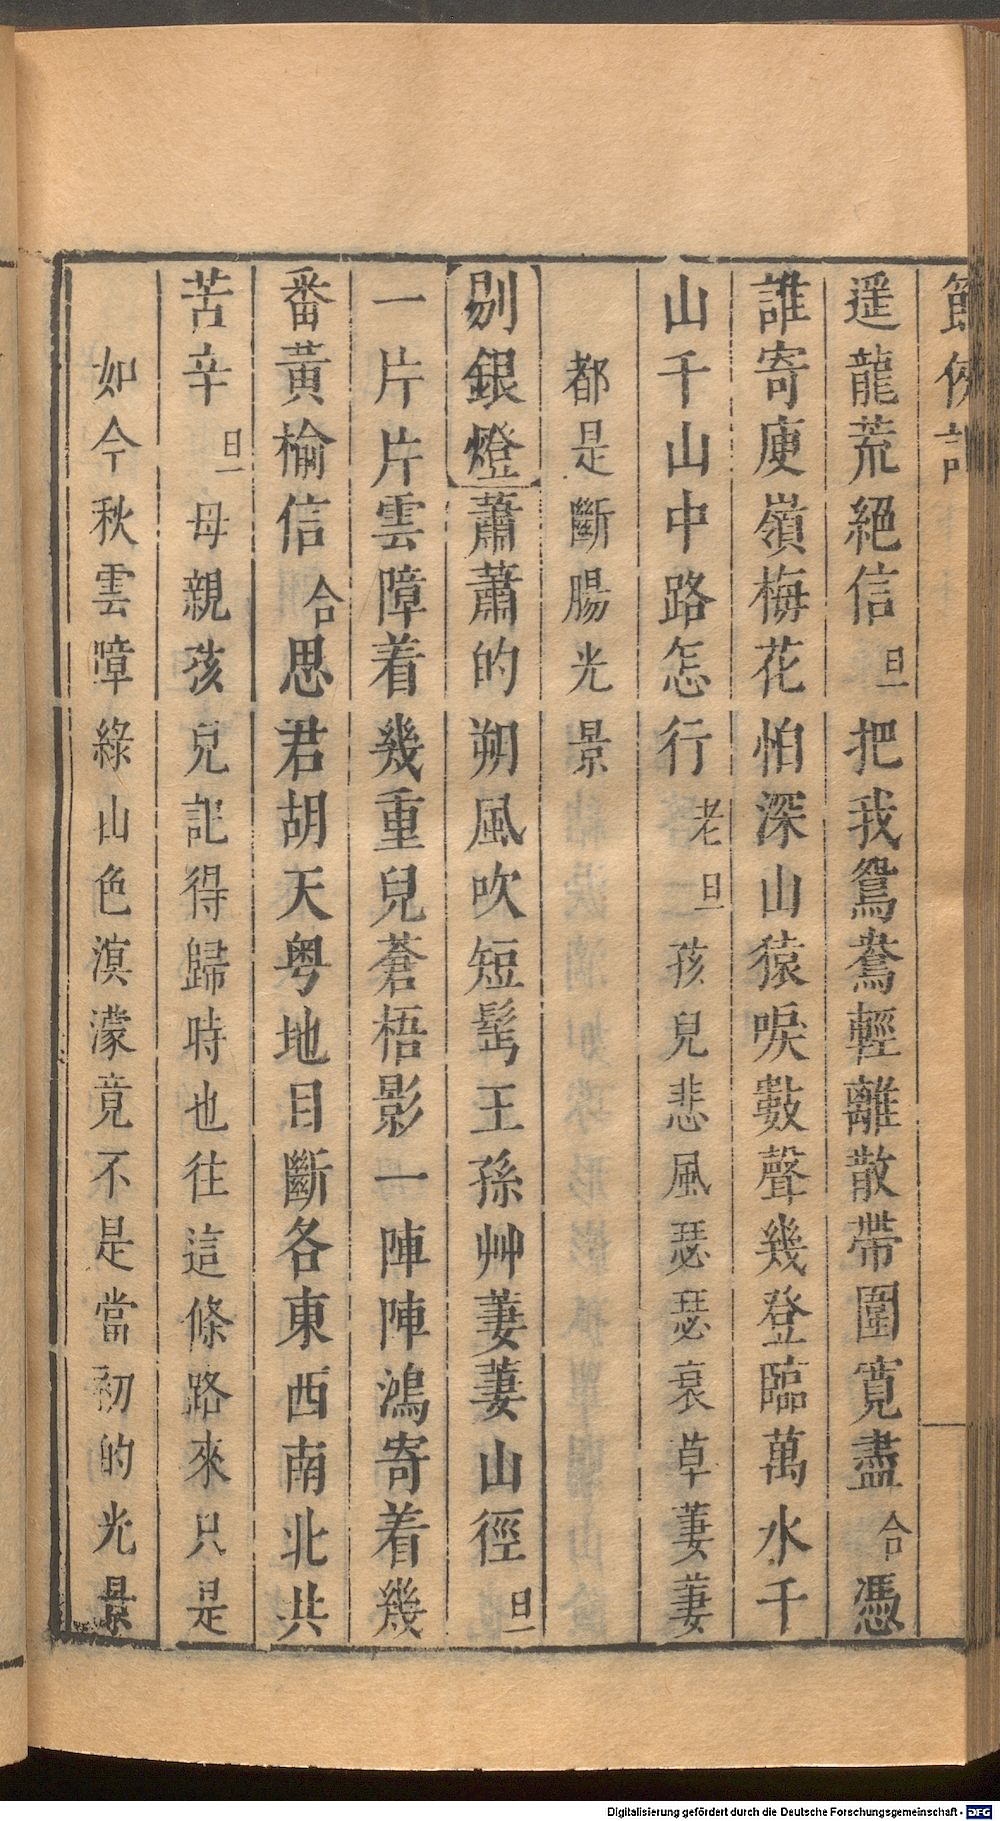 節俠記
遥龍荒絕信旦把我鴛鴦輕離散帶圍寬盡合憑
誰寄庾嶺梅花怕深山猿唳數聲幾登臨萬水千
山千山中路怎行老旦孩兒悲風瑟瑟衰草萋萋
都是斷腸光景
剔銀燈蕭蕭的朔風吹短髩王孫艸萋萋山徑旦
一片片雲障着幾重兒蒼梧影一陣陣鴻寄着幾
番黃榆信合思君胡天粤地目斷各東西南北共
苦辛旦母親孩兒記得歸時也往這條路來只是
如今秋雲障綠山色溟濛竟不是當初的光景
Digitalisierung gefördert durch die Deutsche Forschungsgemeinschaft - DFG